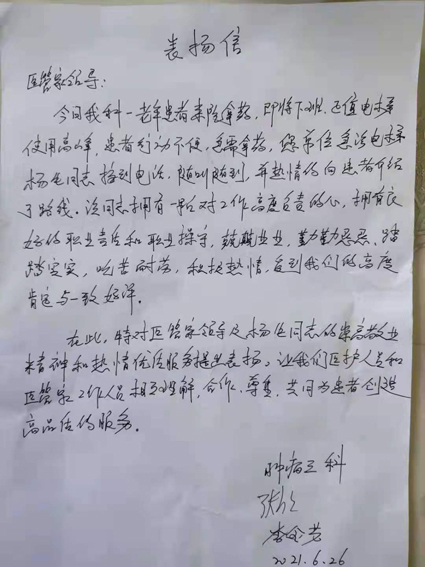 表扬信
医管家领导:
今日我科一老年患者来院拿药,即将下班,还值电梯
使用高峰,患者行动不便,急需拿药,您单位负责电梯
杨生同志接到电话,随叫随到,并热情的向患者介绍
了路线。该同志拥有一颗对工作高度负责的心,拥有良
好的职业责任和职业操守,兢兢业业,勤勤恳恳、踏
踏实实,吃苦耐劳,积极热情,受到我们的高度
肯定与一致好评。
在此,特对医管家领导及杨生同志的崇高敬业
精神和热情优质服务提出表扬,让我们医护人员和
医管家工作人员相互理解,合作、尊重,共同为患者创造
高品质的服务。
肿瘤三科
2021.6.26